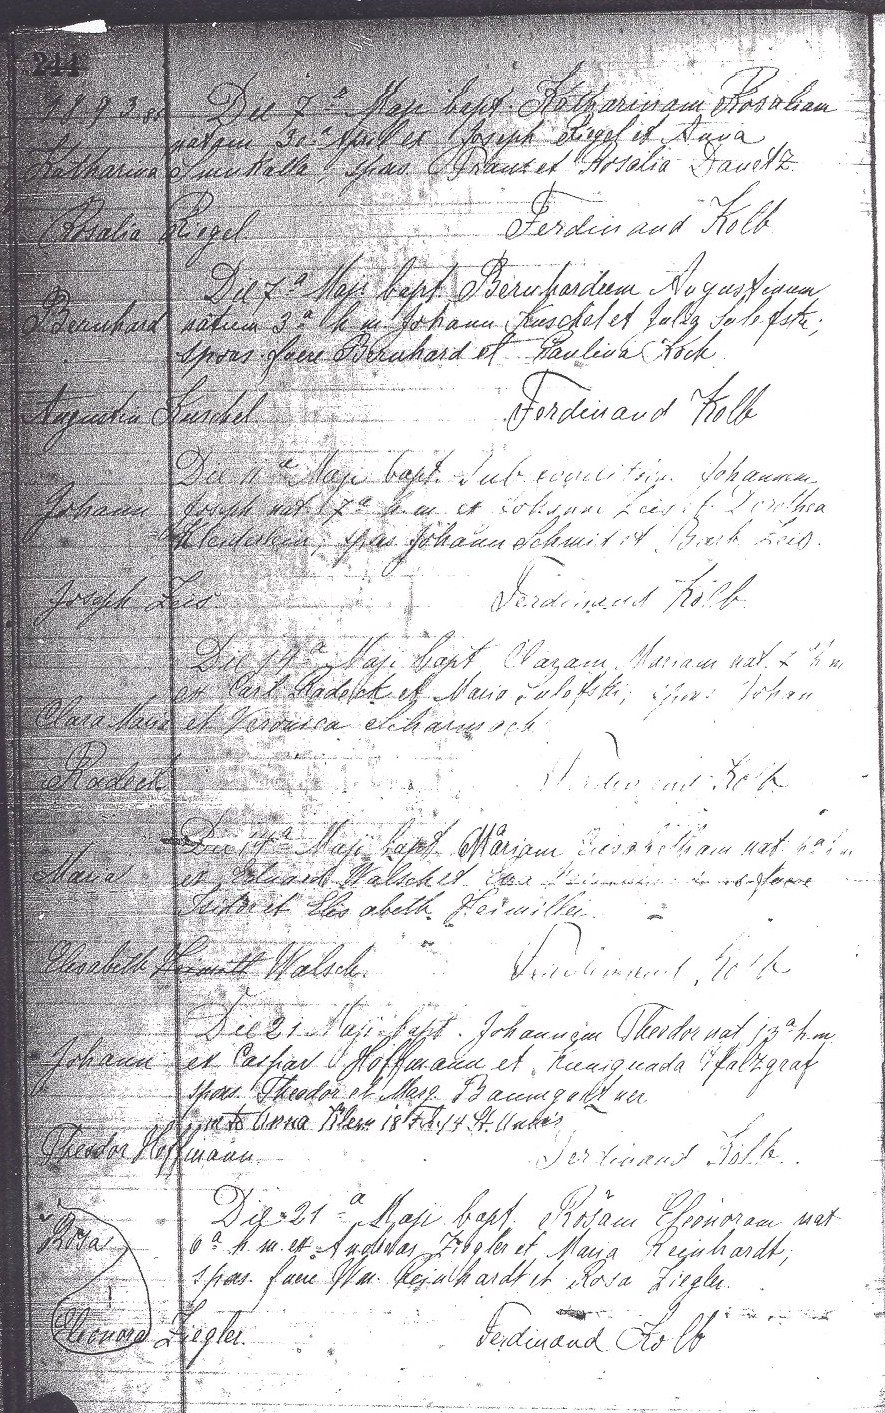 244
1893 Die 7a Maji bapt. Katharinam Rosaliam
natam 30a April ex Joseph Riegel et Anna
Katharina Smukalla, spos Franz et Rosalia Danetz
Rosalia Riegel Ferdinand Kolb
Die 7a Maji bapt. Bernhardum Augustinum
Bernhard natum 3a h. m. Johann Kuschel et Julia
spons. fuere Bernhard et Paulina Koch
Augustin Kuschel Ferdinand Kolb
Die 11a Maji bapt. sub condition. Johannem
Johann Joseph nat 7a h. m. ex Johann Zeis et Dorothea
spos Johann Schmid et Barb Zeis.
Joseph Zeis. Ferdinand Kolb
Die 14a Maji bapt. Claram Mariam nat. h m
ex Carl Radeck et Maria spos: Johan
Clara Maria et Veronica
Radeck Ferdinand Kolb
Die 14a Maji bapt. Mariam Elisabetham nat
Maria ex Eduard Walsch et fuere
et Elisabeth
Elisabeth Walsch. Ferdinand Kolb
Die 21 Maji bapt. Johannem Theodor nat 13a h m
Johann ex Caspar Hoffmann et Kunigunda Pfalzgraf
spos. Theodor et Marg. Baumgartner
Anna 18 Feb. 14 St.
Theodor Hoffmann Ferdinand Kolb.
Die 21a Maji bapt. Rosam Eleonoram nat
Rosa 6a h. m. ex Andreas Ziegler et Maria Reinhardt;
spos. fuere Wm. Reinhardt et Rosa Ziegler.
Eleonora Ziegler. Ferdinand Kolb